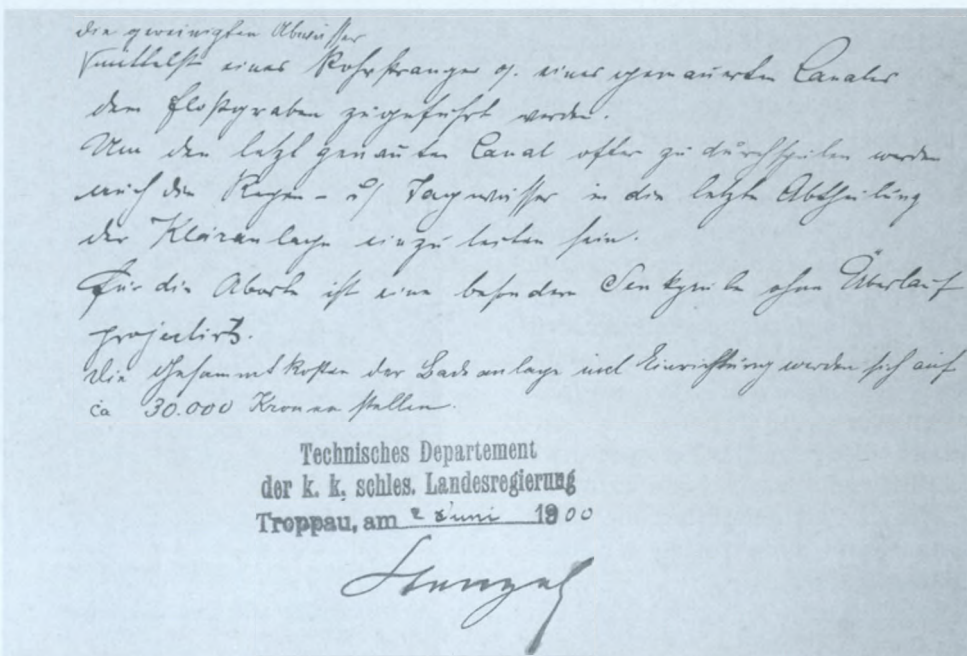 die gereinigten Abwässer
mittelst eines Rohrstranges o. eines gemauerten Canales
dem Floßgraben zugeführt werden.
Um den letztgenannten Canal öfter zu durchspülen werden
auch die Regen- u. Tagwässer in die letzte Abtheilung
der Kläranlage einzuleiten sein.
Für die Aborte ist eine besondere Senkgrube ohne Überlauf
projectirt.
Die Gesammtkosten der Badeanlage incl Einrichtung werden sich auf
ca 30.000 Kronen stellen.
Technisches Departement
der k. k. schles. Landesregierung
Troppau, am 2 Juni 1900
Stenzel